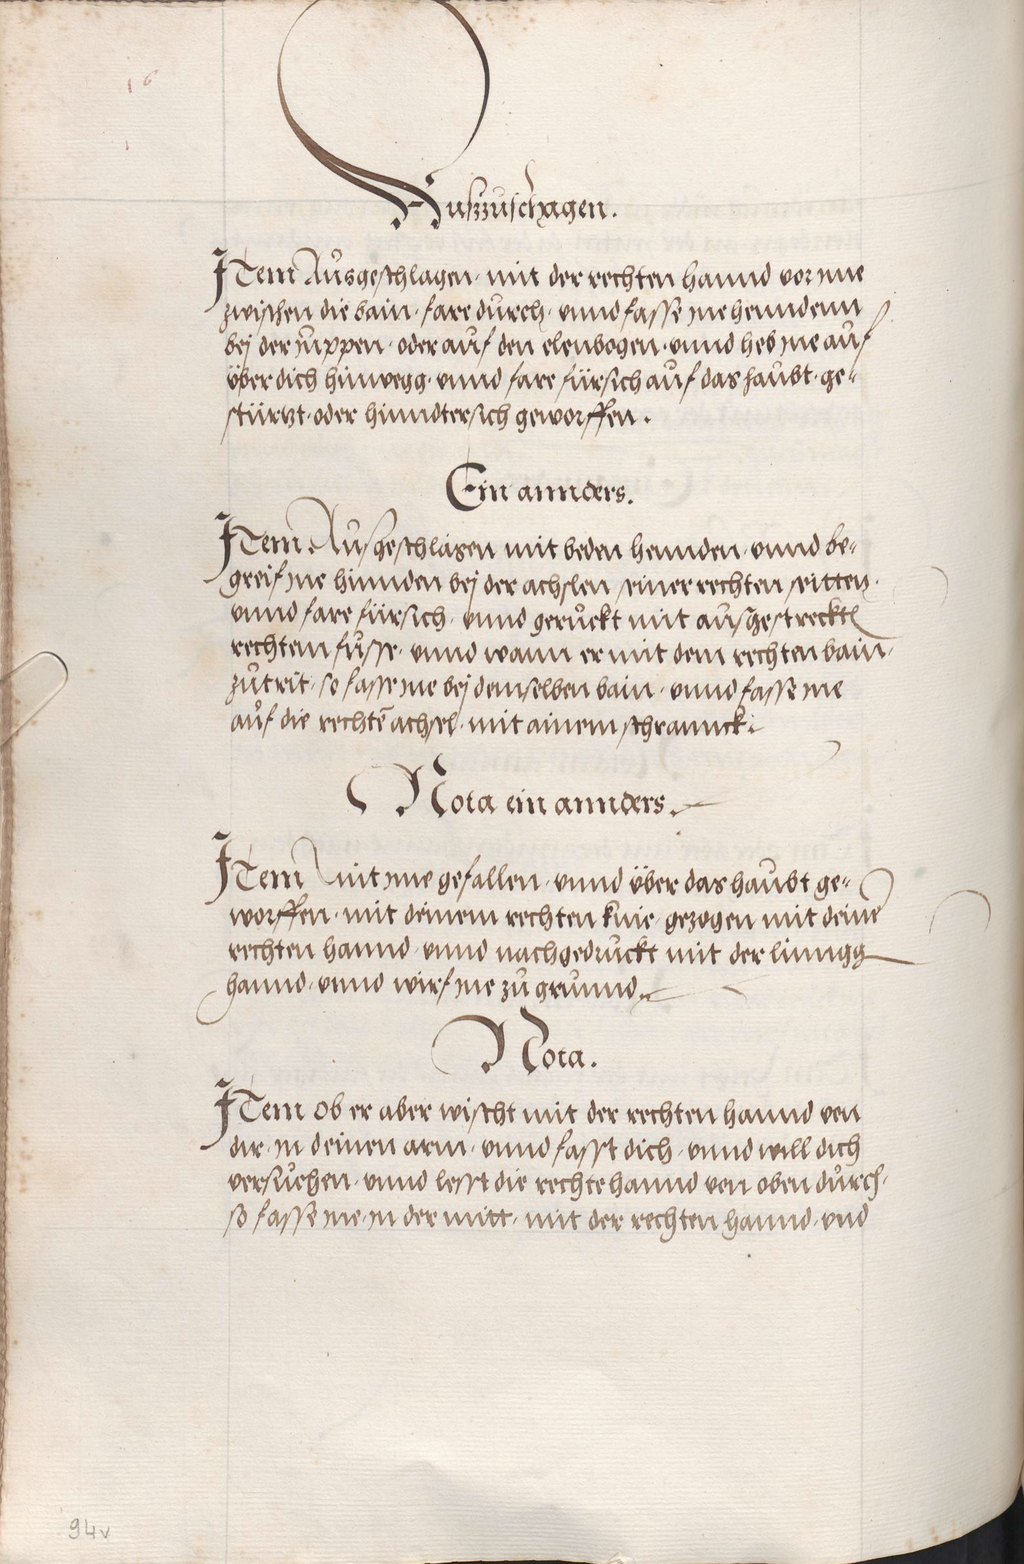 16
Auszuschlagen.
Item Ausgeschlagen · mit der rechten hannd vor jme
zwischen die bain · fare durch · vnnd fasse jne henndenn
bej der juppen · oder auf den elenbogen · vnnd heb jne auf
über dich hinwegg · vnnd fare fürsich auf das haubt · ge⸗
stürtzt · oder hinndtersich geworffen .
Ein annders.
Item Ausgeschlagen mit beden hennden · vnnd be⸗
greif jne hinnden bej der achslen seiner rechten seitten ·
vnnd fare fürsich · vnnd geruckt mit ausgestreckten
rechtem fusse · vnnd wann er mit dem rechten bain ·
zutrit · so fasse jne bej demselben bain · vnnd fasse jne
auf die rechtē achsel · mit ainem schrannck .
Nota ein annders.
Item mit jme gefallen · vnnd über das haubt ge⸗
worffen · mit deinem rechten knie · gezogen mit deine
rechten hannd · vnnd nachgedruckt mit der linngg
hannd · vnnd wirf jne zu grunnd .
Nota.
Item ob er aber wischt mit der rechten hannd von
dir · jn deinen arm · vnnd fasst dich · vnnd will dich
versuchen · vnnd lesst die rechte hannd von oben durch ·
so fasse jne · jn der mitt · mit der rechten hannd · vnd
94v